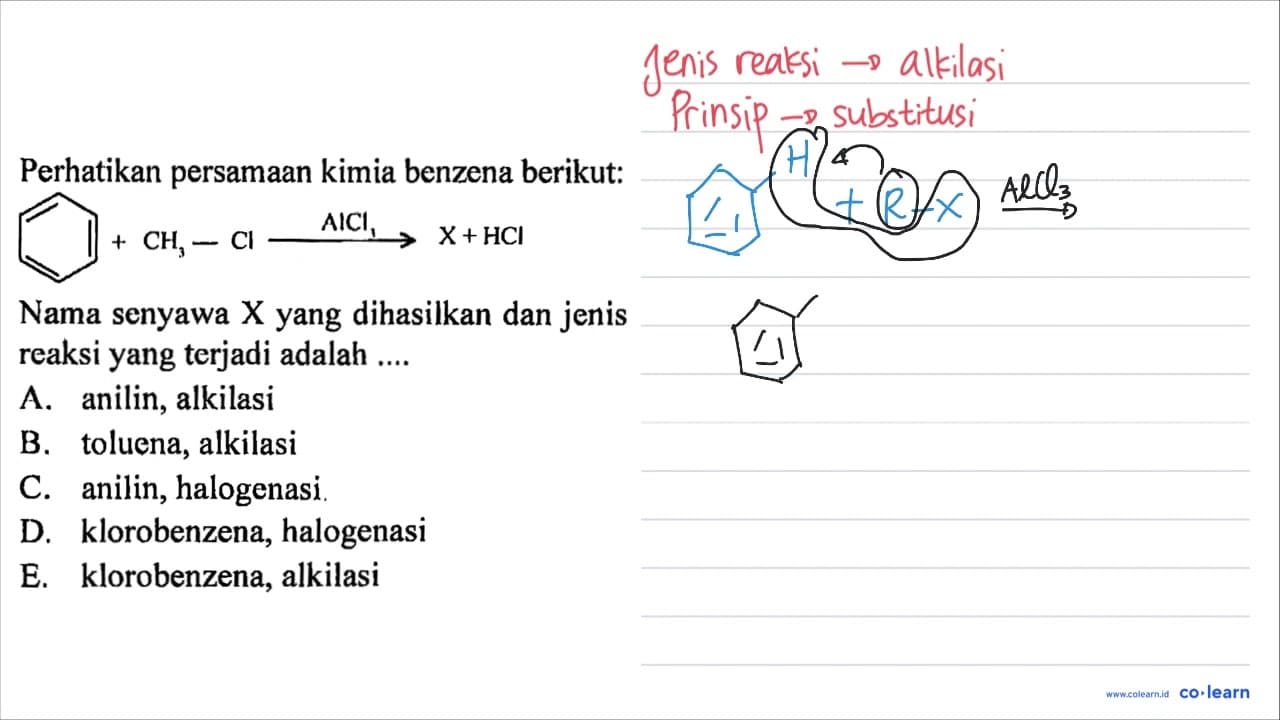 Jenis reaksi → alkilasi
Prinsip → substitusi
Perhatikan persamaan kimia benzena berikut:
+ CH3 — Cl AlCl3 → X + HCl
H + R - X AlCl3 →
Nama senyawa X yang dihasilkan dan jenis
reaksi yang terjadi adalah ....
A. anilin, alkilasi
B. toluena, alkilasi
C. anilin, halogenasi.
D. klorobenzena, halogenasi
E. klorobenzena, alkilasi
www.colearn.id co·learn